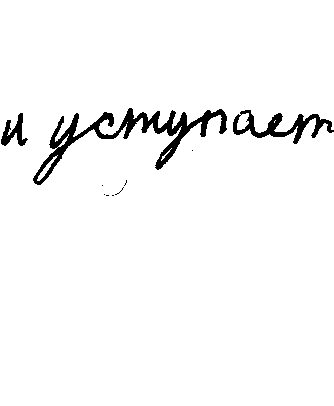 и уступает